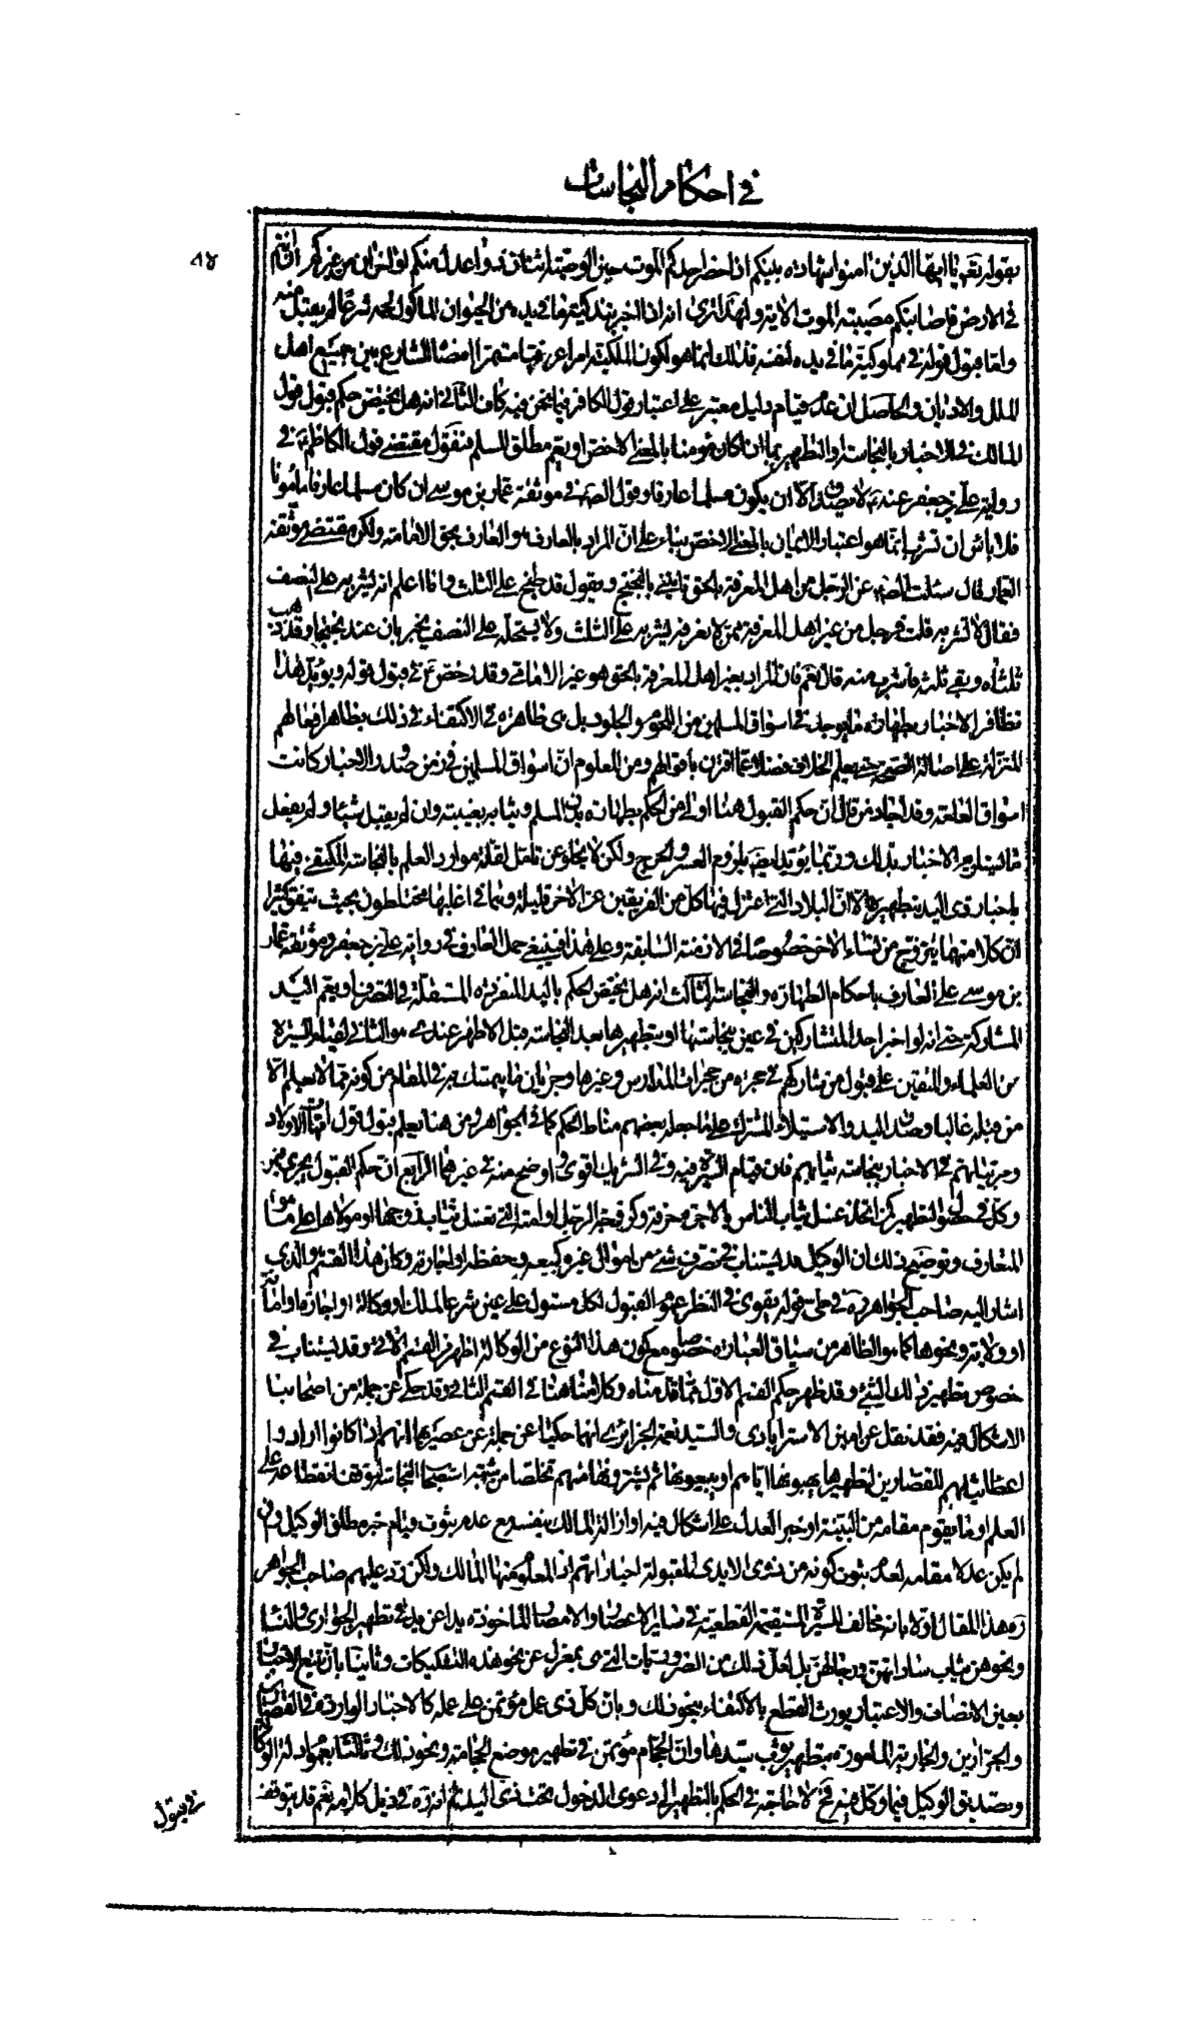 في احكام النجاسات
بقوله تعم يا ايها الذين امنوا شهادة بينكم اذا حضر احدكم الموت حين الوصية اثنان ذوا عدل منكم او اخران من غيركم ان انتم
في الارض فاصابتكم مصيبة الموت الاية ولهذا ترى انه اذا اخبر بتذكية ما في يده من الحيوان الماكول لحمه شرعا لم يقبل منه
واما قبول قوله في مملوكية ما في يده لنفسه فذلك انما هو لكون الملكية امرا عرفيا امضاه الشارع بين جميع اهل
الملل والاديان والحاصل ان عدم قيام دليل معتبر على اعتبار قول الكافر فيما نحن فيه كاف الثاني انه هل يختص حكم قبول قول
المالك في الاخبار بالنجاسة والتطهير بما اذا كان مؤمنا بالمعنى الاخص او يعم مطلق المسلم فنقول مقتضى قول الكاظم ع في
رواية علي بن جعفر عنه ع لا يصدق الا ان يكون مسلما عارفا وقول الصم في موثقة عمار بن موسى ان كان مسلما عارفا مامونا
فلا باس ان تشربه انما هو اعتبار الايمان بالمعنى الاخص بناء على ان المراد بالعارف هو العارف بحق الامامة ولكن مقتضى موثقة
العمار قال سئلت الصم عن الرجل من اهل المعرفة بالحق ياتيني بالبختج ويقول قد طبخ على الثلث وانا اعلم انه يشربه على النصف
فقال لا تشربه قلت فرجل من غير اهل المعرفة ممن لا نعرفه يشربه على الثلث ولا يستحله على النصف يخبر بان عنده بختجا وقد ذهب
ثلثاه وبقى ثلثه فاشرب منه قال نعم فان المراد بغير اهل المعرفة بالحق هو غير الامامي وقد رخص ع في قبول قوله ويؤيد هذا
تظافر الاخبار بطهارة ما يوجد في اسواق المسلمين من اللحوم والجلود بل هي ظاهرة في الاكتفاء في ذلك بظاهر افعالهم
المنزلة على اصالة الصحة حتى يعلم الخلاف فضلا عما اقترن باقوالهم ومن المعلوم ان اسواق المسلمين في زمن صدور الاخبار كانت
اسواق العامة وقد اجاد من قال ان حكم القبول هنا اولى من الحكم بطهارة بدن المسلم وثيابه بغيبته وان لم يقل شيئا ولم يفعل
ما يستلزم الاخبار بذلك وربما يؤيد ايضا بلزوم العسر والحرج ولكن لا يخلو عن تامل لقلة موارد العلم بالنجاسة المكتفى فيها
باخبار ذي اليد بتطهيرها الا ان البلاد التي اعتزل فيها كل من الفريقين عن الاخر قليلة وهما في اغلبها مختلطون بحيث يتفق كثيرا
ان كلا منهما يتزوج من نساء الاخر خصوصا في الازمنة السابقة وعلى هذا فينبغي حمل العارف في رواية علي بن جعفر وموثقة عمار
بن موسى على العارف باحكام الطهارة والنجاسة الثالث انه هل يختص الحكم باليد المنفردة المستقلة في التصرف او يعم اليد
المشاركة حتى انه لو اخبر احد المتشاركين في عين بنجاستها او بتطهيرها بعد النجاسة قبل الاظهر عندي هو الثاني لقيام السيرة
من العلماء والمتقين على قبول من شاركهم في حجرة من حجرات المدارس وغيرها وجريان ما يتمسك به في المقام من كونه مما لا يعلم الا
من قبله غالبا وصدق اليد والاستيلاء المشترك على ما جعله بعضهم مناط الحكم كما في الجواهر ومن هنا يعلم قبول قول امهات الاولاد
ومربياتهم في الاخبار بنجاسة ثيابهم فان قيام السيرة فيه وفي الشريك اقوى واوضح منه في غيرهما الرابع ان حكم القبول يجري في
وكل في التطهير كمن اتخذ غسل ثياب الناس بالاجرة حرفة وكزوجة الرجل او امته التي تغسل ثياب زوجها او مولاها على ما هو
المتعارف وتوضيح ذلك ان الوكيل قد يستناب في تصرف شئ من اموال غيره كبيعه وحفظه او اجارته وكان هذا القسم هو الذي
اشار اليه صاحب الجواهر ره في طى قوله يقوى في النظر عموم القبول لكل مستول على عين شرعا لملك او وكالة او اجارة او امانة
او ولاية ونحوها كما هو الظاهر من سياق العبارة خصوصا مع كون هذا النوع من الوكالة اظهر من القسم الاتي وقد يستناب في
خصوص تطهير ذلك الشئ وقد ظهر حكم القسم الاول مما قدمناه وكلامنا هنا في القسم الثاني وقد حكى عن جملة من اصحابنا
الاشكال فيه فقد نقل عن امين الاسترابادي والسيد نعمة الجزائري انهما حكيا عن جملة من عصريهما انهم اذا كانوا ارادوا
اعطاء ثيابهم للقصارين لتطهيرها يهبونها اياهم او يبيعونها ثم يشترونها منهم تخلصا من شبهة استصحاب النجاسة لتوقف انقطاعه على
العلم او ما يقوم مقامه من البينة او خبر العدل على اشكال فيه او ازالة المالك بنفسه مع عدم ثبوت قيام خبر مطلق الوكيل وان
لم يكن عدلا مقامه لعدم ثبوت كونه من ذوى الايدى المقبولة اخباراتهم اذ المعلوم منها المالك ولكن رد عليهم صاحب الجواهر
ره هذا المقال اولا بانه مخالف للسيرة المستقيمة القطعية في ساير الاعصار والامصار الماخوذة يدا عن يد في تطهير الجواري والنساء
ونحوهن ثياب ساداتهن ورجالهن بل لعل ذلك من الضروريات التي هي بمعزل عن نحو هذه التفكيكات وثانيا بان تتبع الاخبار
بعين الانصاف والاعتبار يورث القطع بالاكتفاء بنحو ذلك وبان كل ذى عمل مؤتمن على عمله كالاخبار الواردة في القصابين
والجزارين والجارية المامورة بتطهير ثوب سيدها وان الحجام مؤتمن في تطهير موضع الحجامة ونحو ذلك وثالثا بعموم ادلة الوكالة
وتصديق الوكيل فيما وكل فيه فح لا حاجة في الحكم بالتطهير الى دعوى الدخول تحت ذى اليد ثم انه ره في ذيل كلامه نعم قد يتوقف
في قبول